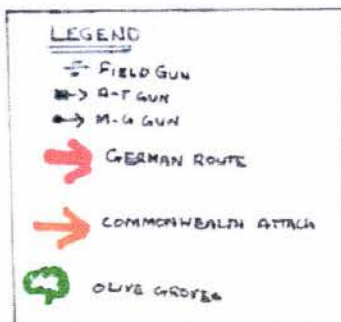 LEGEND
FIELD GUN
A-T GUN
M-G GUN
GERMAN ROUTE
COMMONWEALTH ATTACK
OLIVE GROVES